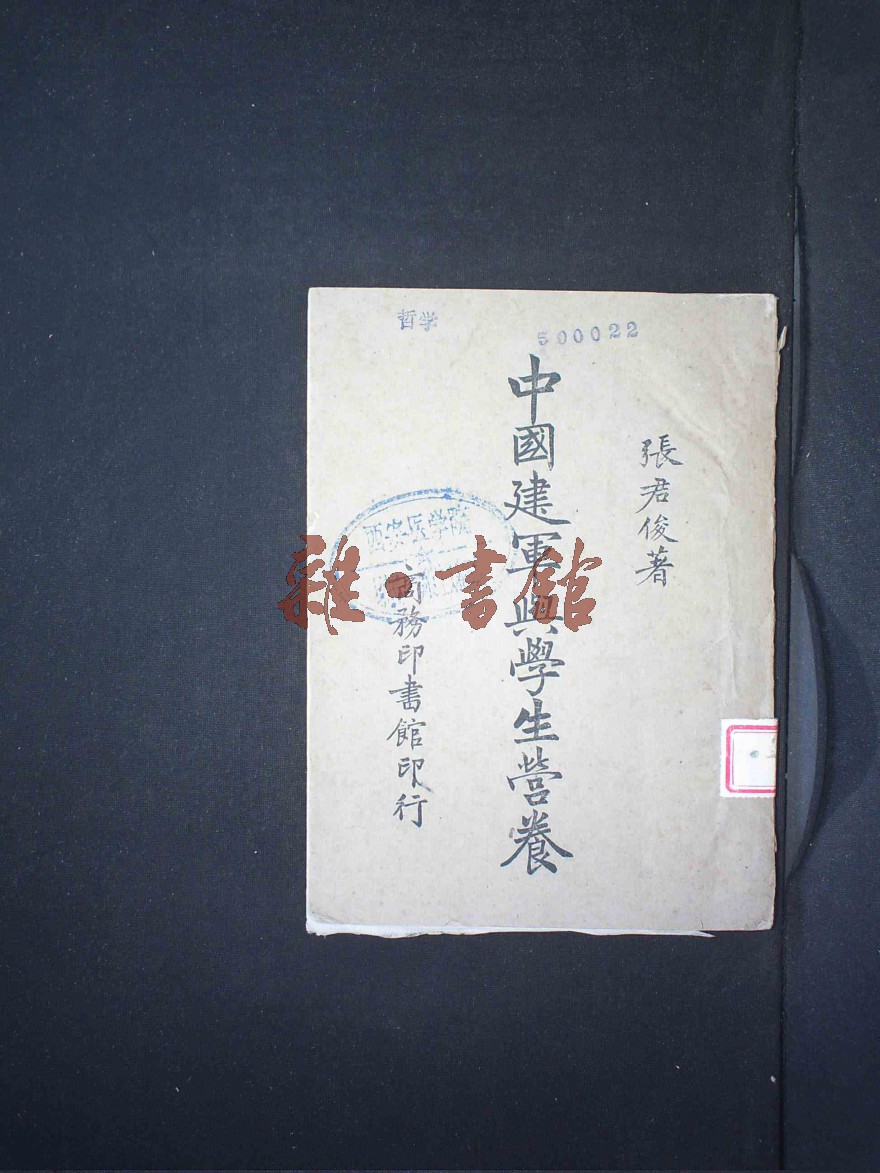 哲学
500022
張君俊著
中國建軍與學生營養
商務印書館印行
西安医学院
雜·書館